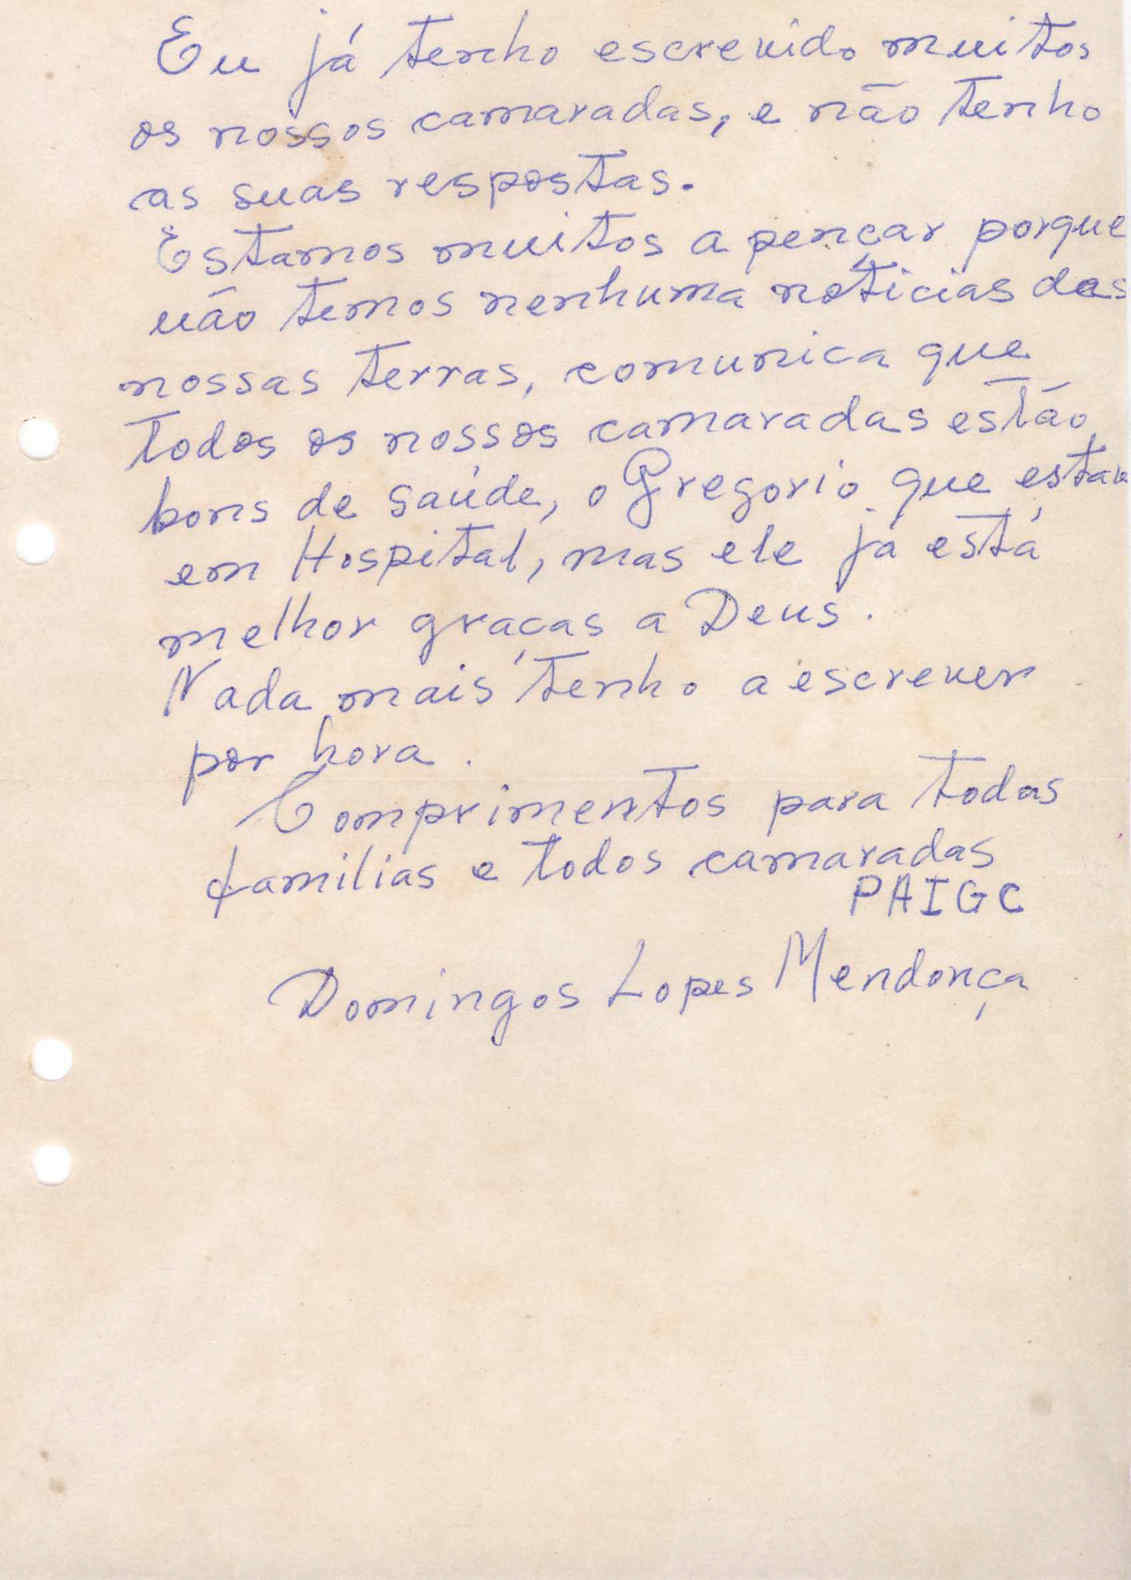 Eu já tenho escrevido muitos
os nossos camaradas, e não tenho
as suas respostas.
Estamos muitos a pençar porque
não temos nenhuma notícias das
nossas terras, comunica que
todos os nossos camaradas estão
bons de saúde, o Gregorio que estava
em Hospital, mas ele já está
melhor graças a Deus.
Nada mais tenho a escrever
por hora.
Comprimentos para todas
familias e todos camaradas
PAIGC
Domingos Lopes Mendonça